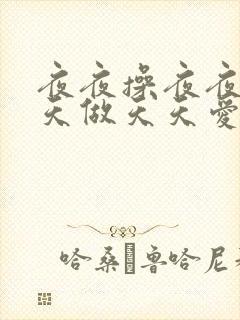 夜夜操夜夜
天做天天爱
哈桑·鲁哈尼